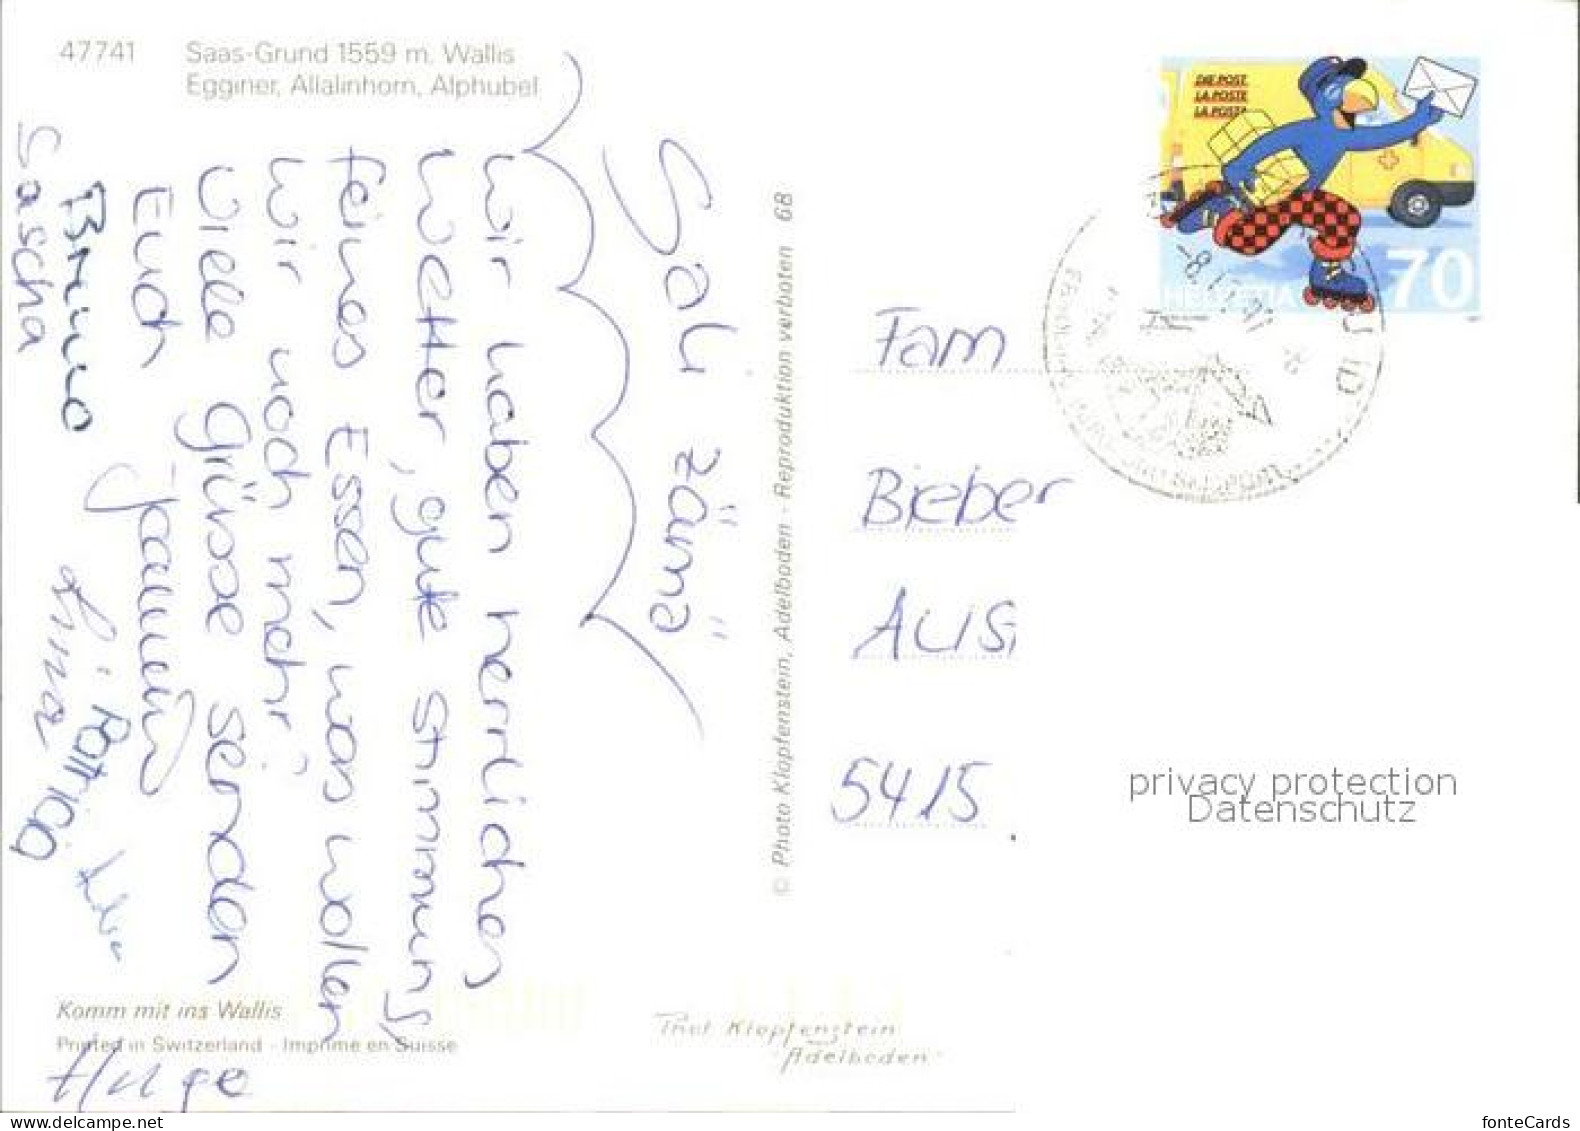 47741
Saas-Grund 1559 m, Wallis
Egginer, Allalinhorn, Alphubel
Sali zämä
Wir haben herrliches
Wetter, gute Stimmung,
feines Essen, was wollen
wir noch mehr
Viele Grüsse senden
Euch
Bruno
Patricia
Sascha
Hugo
© Photo Klopfenstein, Adelboden - Reproduktion verboten 68
Fam
Bieber
5415
DIE POST
LA POSTE
LA POSTA
HELVETIA
70
privacy protection
Datenschutz
Komm mit ins Wallis
Printed in Switzerland - Imprimé en Suisse
Klopfenstein
Adelboden
www.delcampe.net
fonteCards